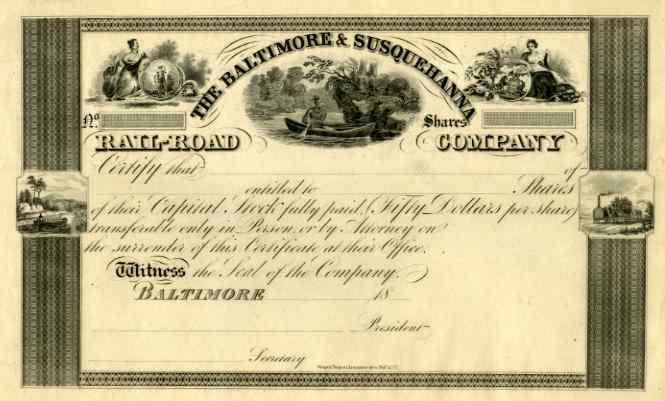 THE BALTIMORE & SUSQUEHANNA
No. Shares
RAIL-ROAD COMPANY
Certify that of
entitled to Shares
of their Capital Stock fully paid, (Fifty Dollars per share)
transferable only in Person, or by Attorney on
the surrender of this Certificate at their Office.
Witness the Seal of the Company.
BALTIMORE 18
President
Secretary